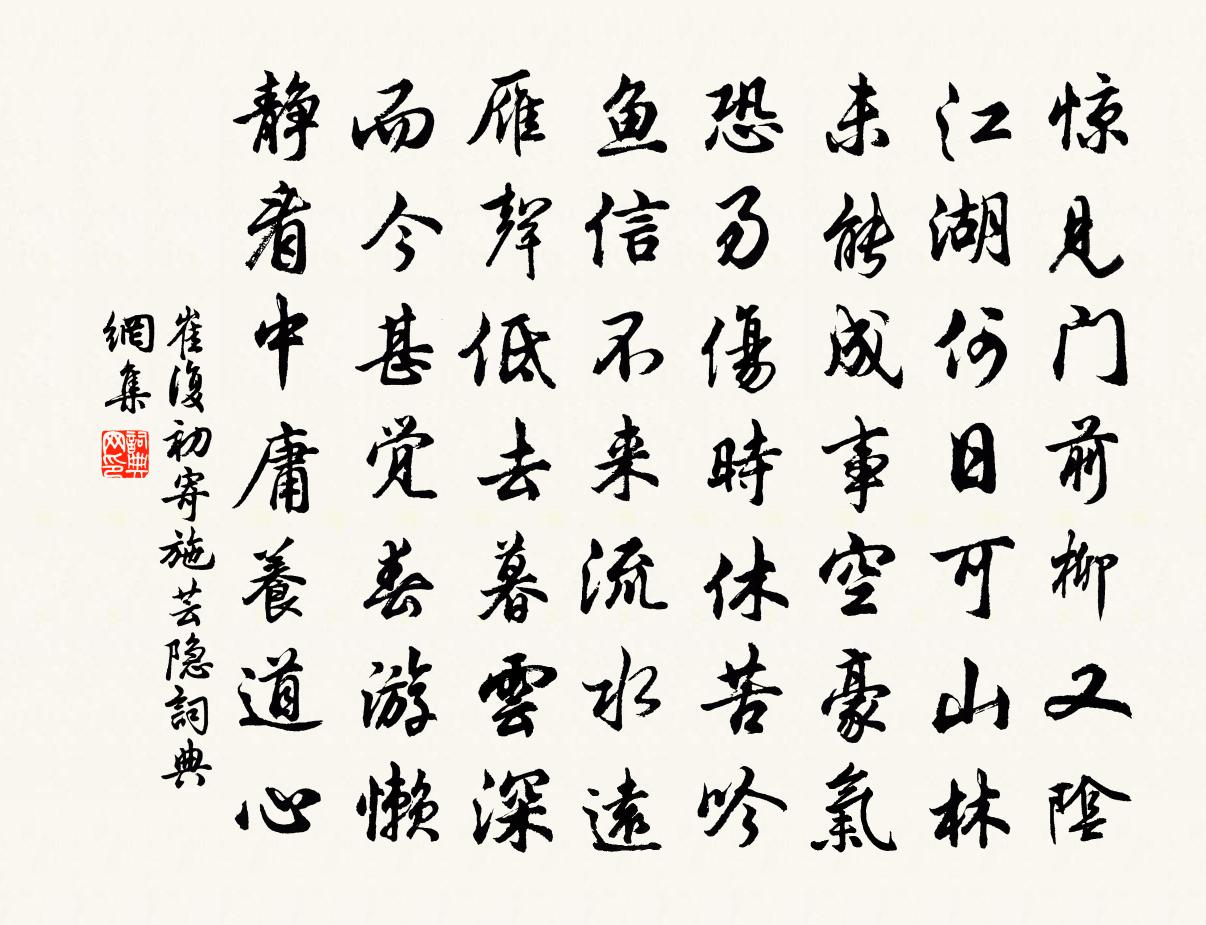 惊见门前柳又陰
江湖何日可山林
未能成事空豪氣
恐易傷時休苦吟
鱼信不来流水遠
雁聲低去暮雲深
而今甚觉春游懒
静看中庸養道心
崔復初寄施芸隐詞典
網集
詞典
网印